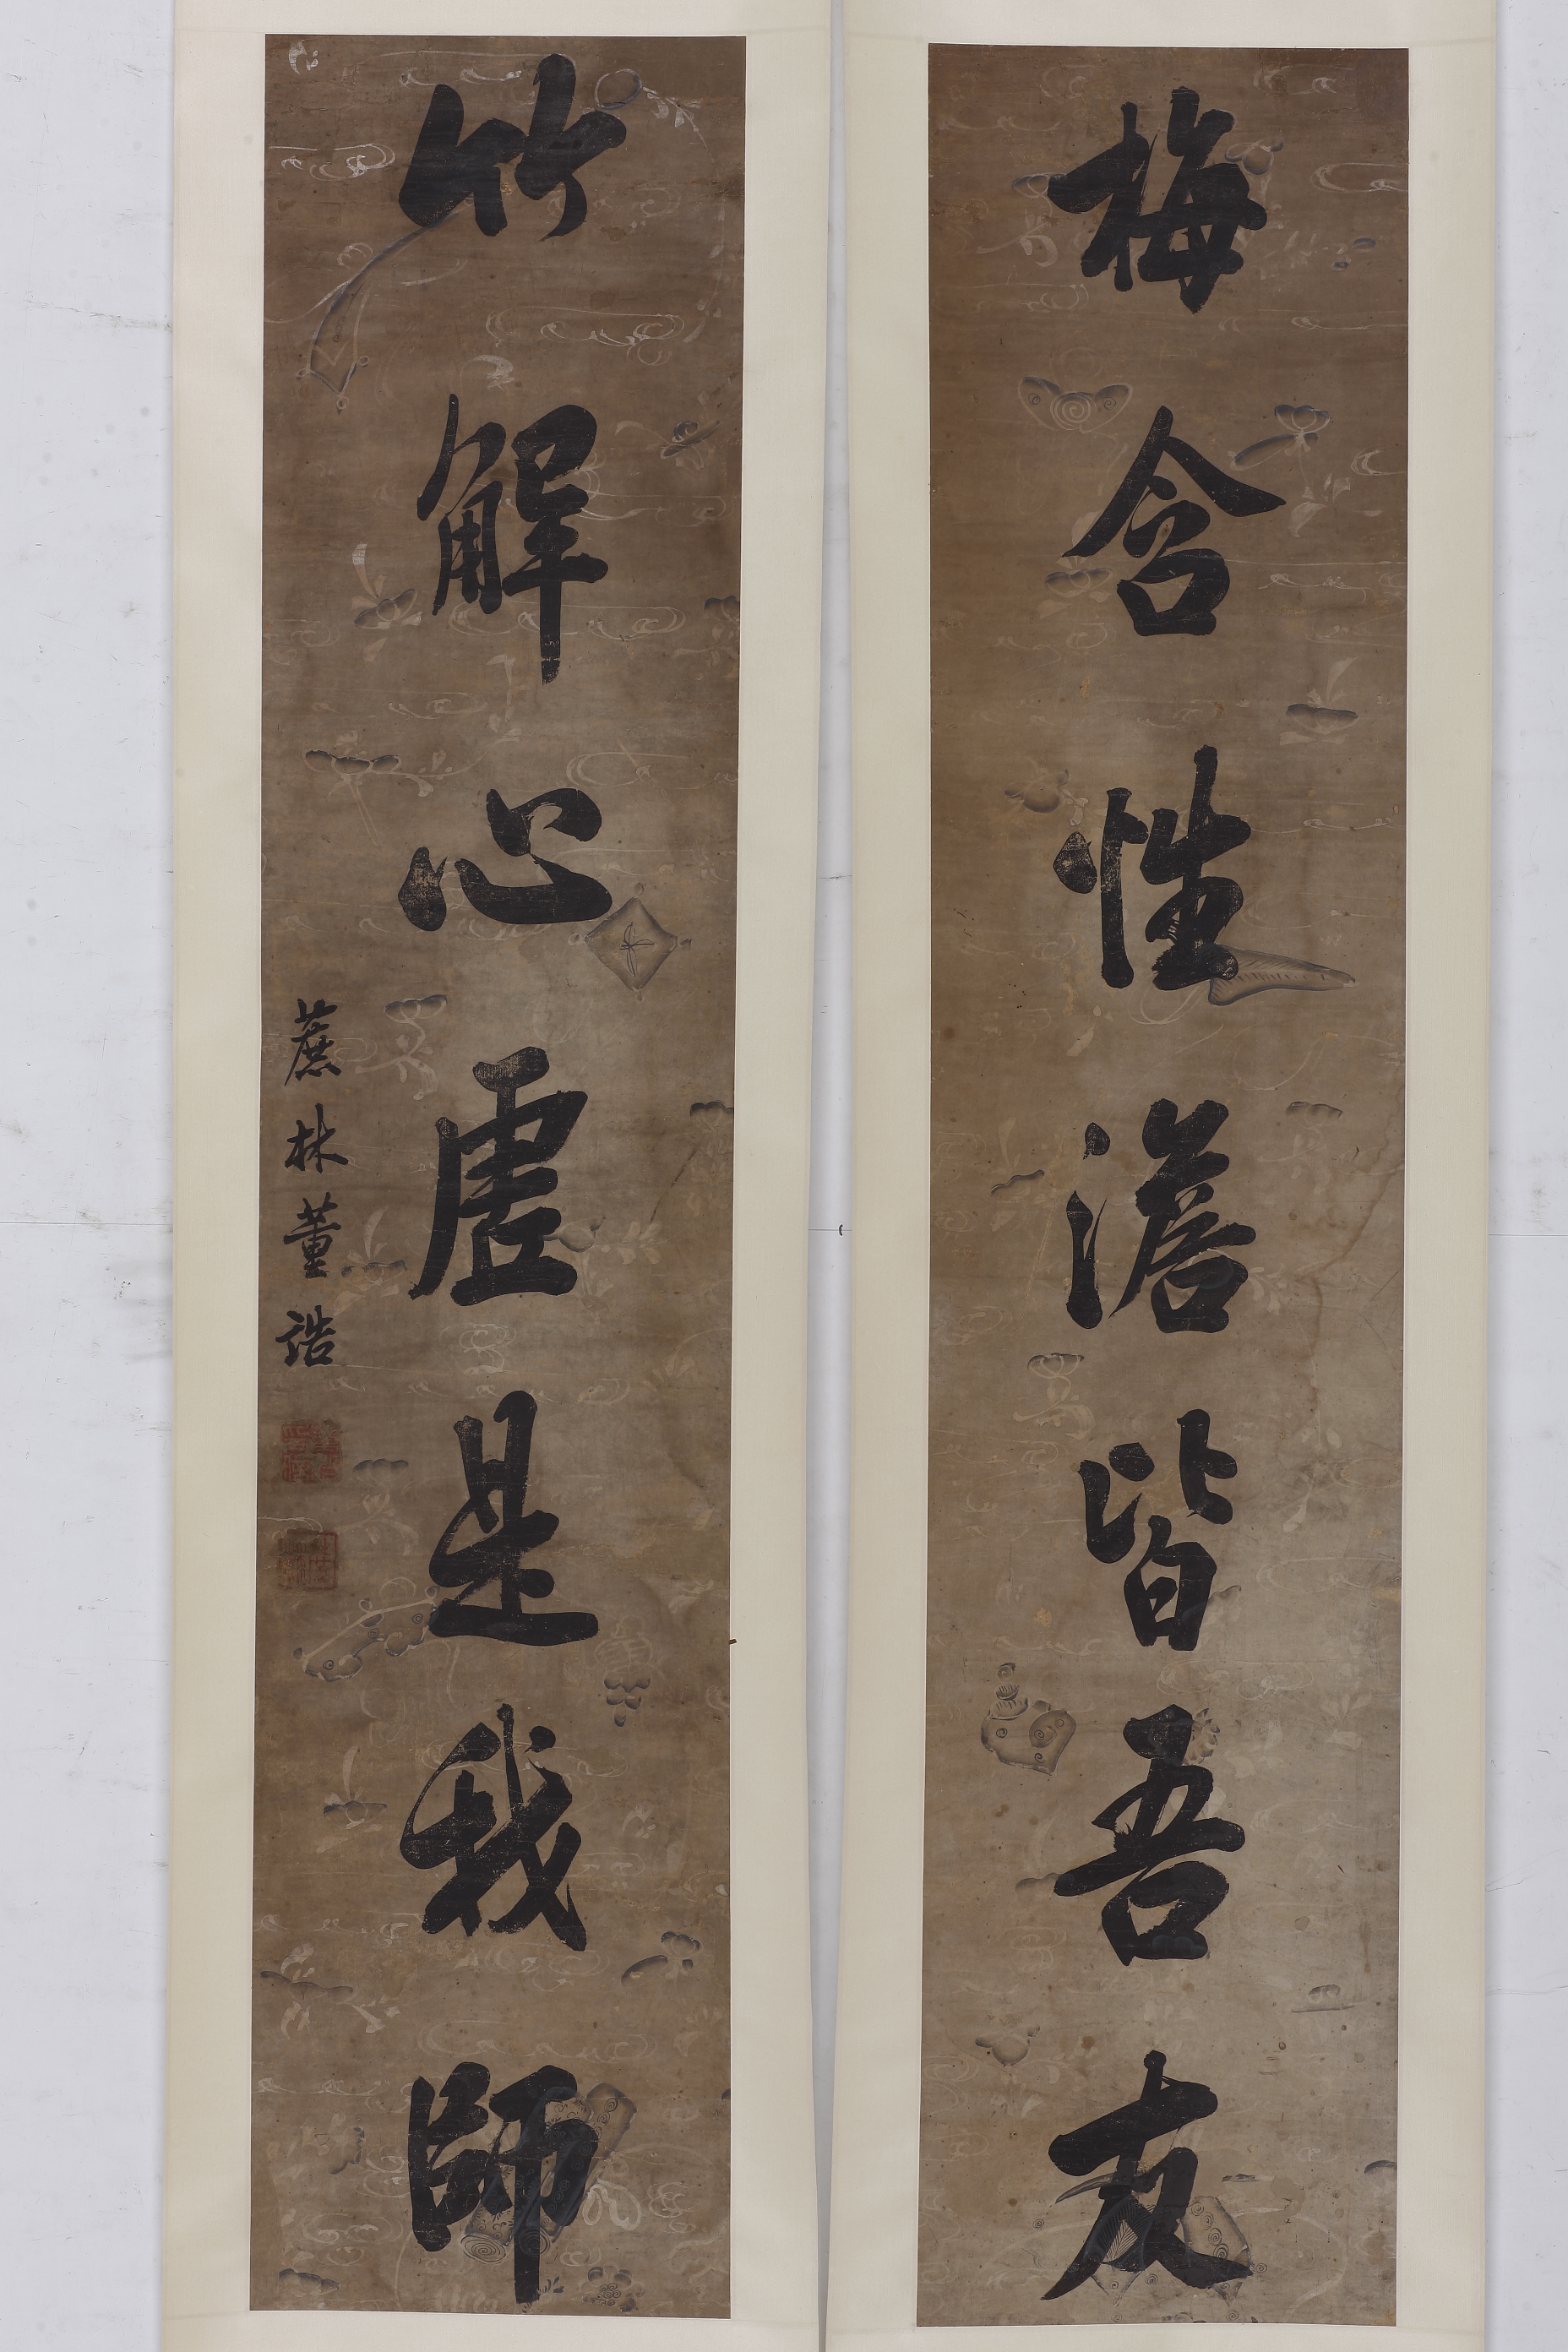 梅含性澹皆吾友
竹解心虛是我師
蔗林董誥